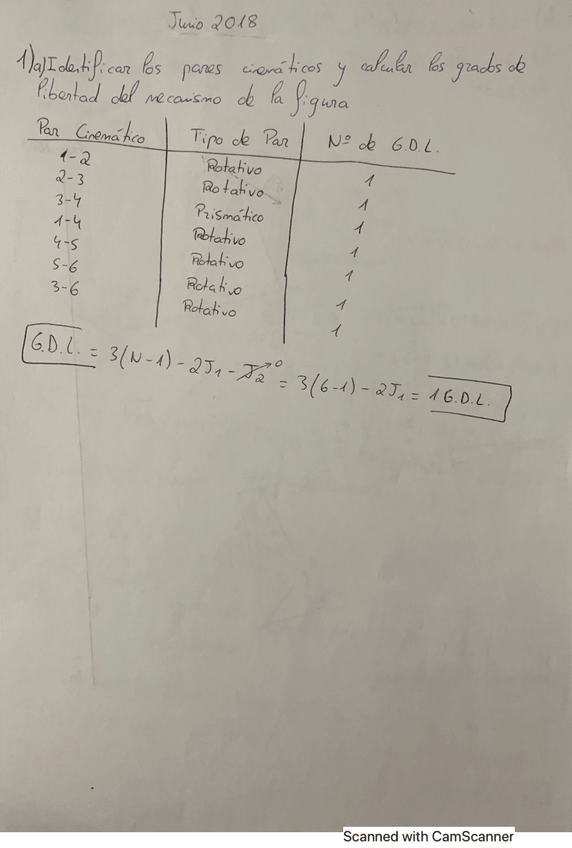 Junio 2018
1)a) Identificar los pares cinemáticos y calcular los grados de
libertad del mecanismo de la figura
Par Cinemático | Tipo de Par | Nº de G.D.L.
1-2 | Rotativo | 1
2-3 | Rotativo | 1
3-4 | Prismático | 1
1-4 | Rotativo | 1
4-5 | Rotativo | 1
5-6 | Rotativo | 1
3-6 | Rotativo | 1
G.D.L. = 3(N-1) - 2J₁ - J₂→0 = 3(6-1) - 2J₁ = 1 G.D.L.
Scanned with CamScanner